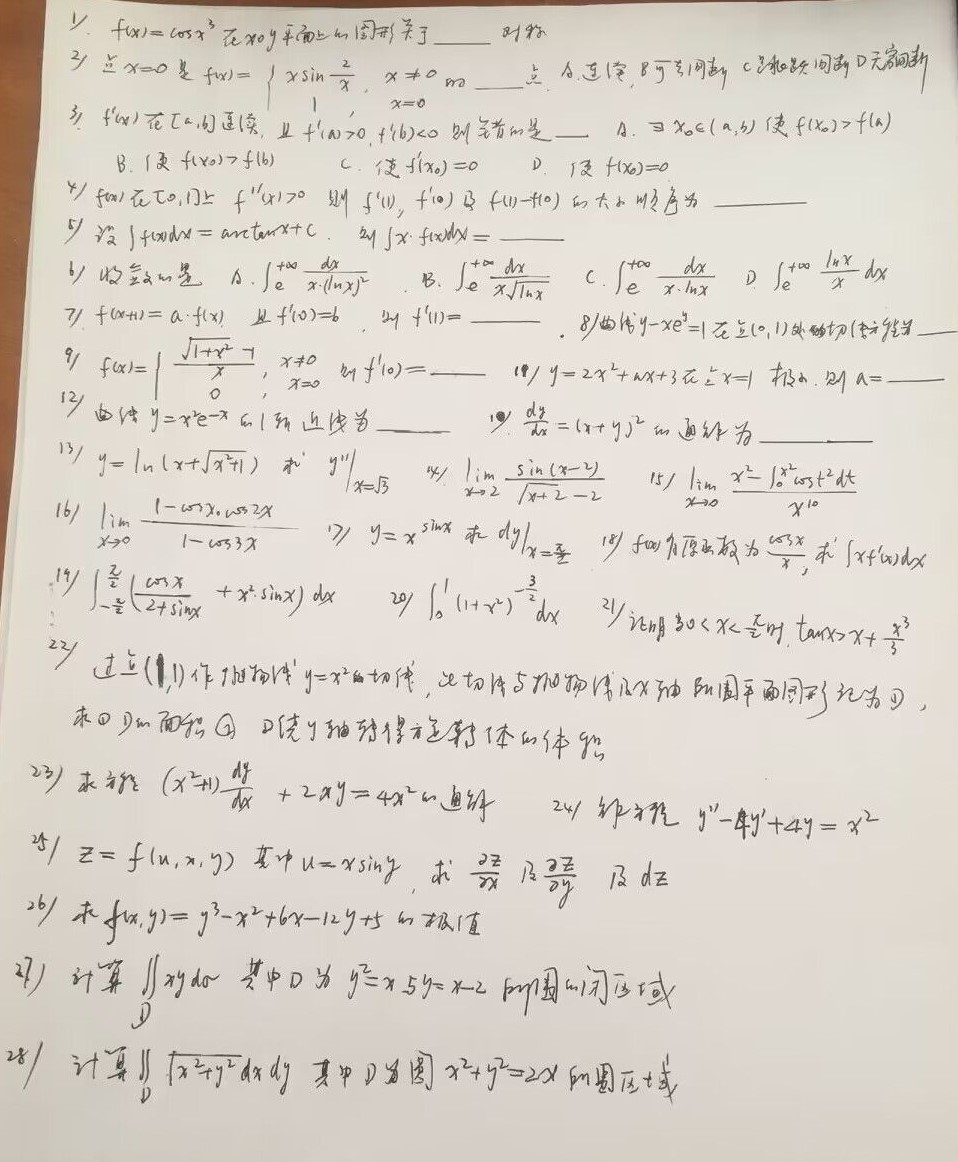 1) f(x)=cosx³ 在xoy平面上的图形关于____对称
2) 点x=0是f(x)={ x sin 2/x, x≠0 的____点 A.连续, B可去间断 C跳跃间断 D无穷间断
1, x=0
3) f'(x)在[a,b]连续, 且f'(a)>0, f'(b)<0 则错的是____ A. ∃x₀∈(a,b)使f(x₀)>f(a)
B. 使f(x₀)>f(b) C. 使f'(x₀)=0 D. 使f(x₀)=0
4) f(x)在[0,1]上 f''(x)>0 则f'(1), f'(0)及f(1)-f(0)的大小顺序为____
5) 设∫f(x)dx=arctanx+c. 则∫x·f(x)dx=____
6) 收敛的是 A. ∫e^+∞ dx/(x·(lnx)²) B. ∫e^+∞ dx/(x√lnx) C. ∫e^+∞ dx/(x·lnx) D. ∫e^+∞ lnx/x dx
7) f(x+1)=a·f(x) 且f'(0)=b, 则f'(1)=____ 8) 曲线y-xe^y=1在点(0,1)处的切线方程为____
9) f(x)={ (√(1+x²)-1)/x, x≠0 则f'(0)=____ 11) y=2x²+ax+3在点x=1极小. 则a=____
0, x=0
12) 曲线y=x²e^-x的渐近线为____ 10) dy/dx=(x+y)²的通解为____
13) y=ln(x+√(x²+1)) 求 y''|x=√3 14) lim x→2 sin(x-2)/(√(x+2)-2) 15) lim x→0 (x²-∫0^x² cost²dt)/x^10
16) lim x→0 (1-cosx·cos2x)/(1-cos3x) 17) y=x^sinx 求dy|x=π/2 18) f(x)有原函数为cosx/x, 求∫xf'(x)dx
19) ∫-π/2^π/2 (cosx/(2+sinx) + x²·sinx) dx 20) ∫0^1 (1+x²)^-3/2 dx 21) 证明当0<x<π/2时, tanx>x+x³/3
22) 过点(1,1)作抛物线y=x²的切线, 此切线与抛物线及x轴所围平面图形记为D,
求①D的面积② D绕y轴转得旋转体的体积
23) 求方程 (x²+1)dy/dx + 2xy=4x²的通解 24) 解方程 y''-4y'+4y=x²
25) z=f(u,x,y) 其中u=xsiny, 求 ∂z/∂x 及∂z/∂y 及dz
26) 求f(x,y)=y³-x²+6x-12y+5的极值
27) 计算∬D xydσ 其中D为y²=x与y=x-2所围的闭区域
28) 计算∬D √(x²+y²) dxdy 其中D为圆x²+y²=2x所围区域